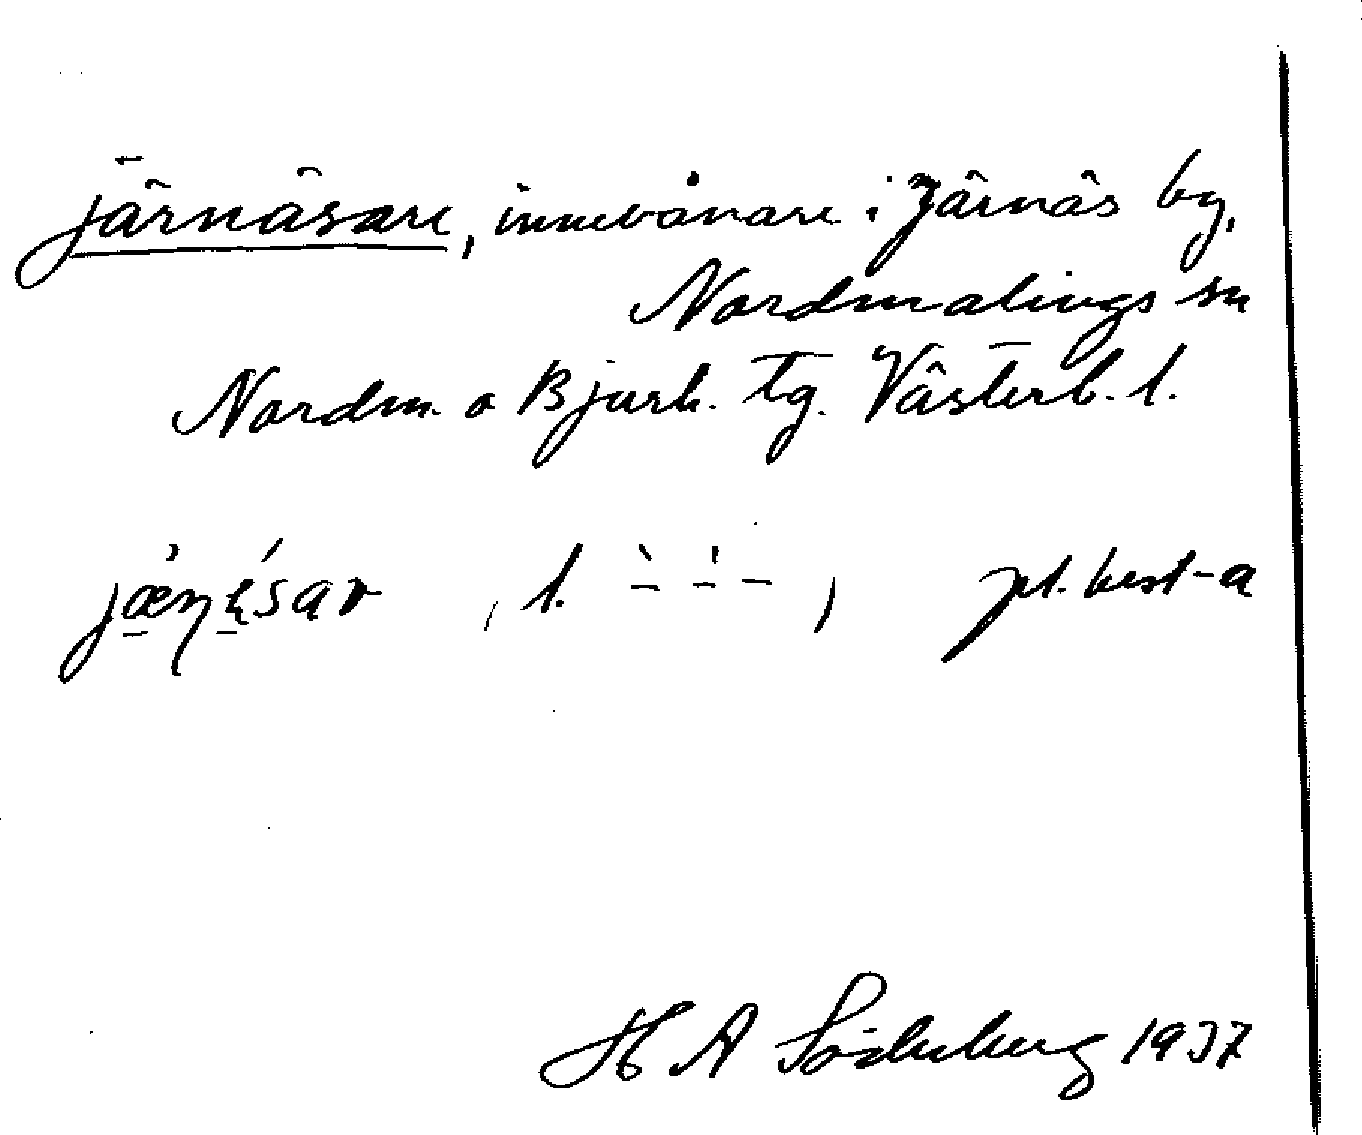 järnäsare, innevånare i Järnäs by,
Nordmalings sn
Nordm. o Bjurh. tg. Västerb. l.
l. pl. best -a
H A Söderberg 1937